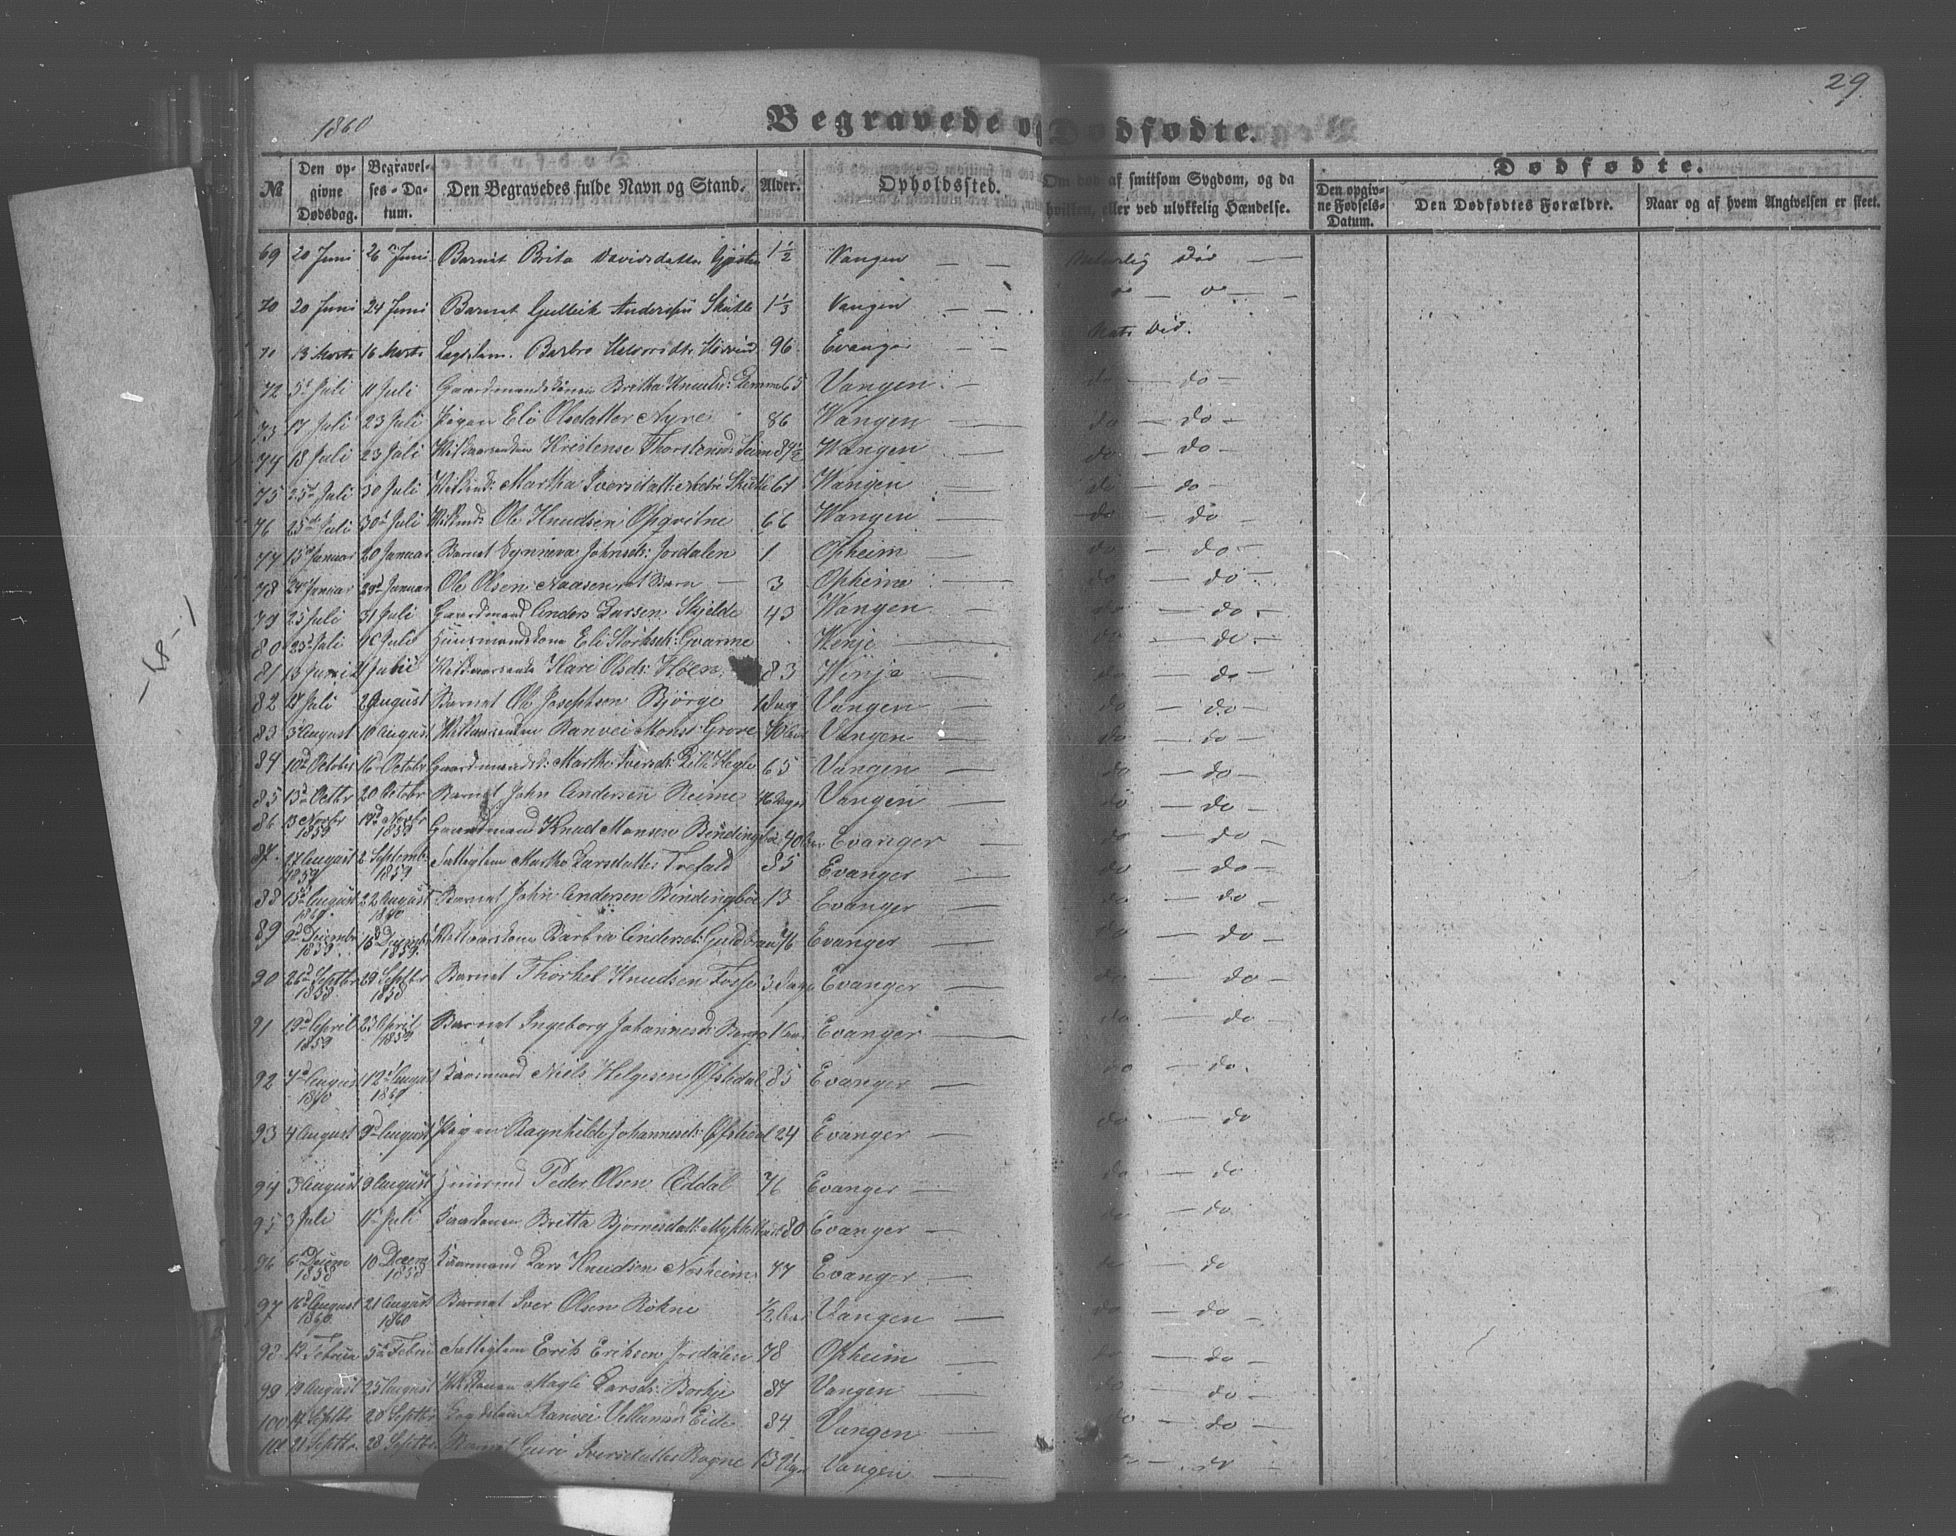 29
1860
Begravede og Dødfødte.
№ Den opgivne Dødsdag. Begravelses-Datum. Den Begravedes fulde Navn og Stand. Alder. Opholdssted. Om død af smitsom Sygdom, og da hvilken, eller ved ulykkelig Hændelse. Dødfødte. Den opgivne Fødsels-Datum. Den Dødfødtes Forældre. Naar og af hvem Angivelsen er skeet.
69 20 Juni 26 Juni Barnet Brita Davidsdatter 1½ Vangen — — Naturlig Død —
70 20 Juni 24 Juni Barnet Gulleik Andersen Skutle 1⅓ Vangen — —
71 13 Marts 16 Marts Lægdslem. Barbro 96 Evanger — — Nat: Død.
72 5 Juli 11 Juli Gaardmandskonen Britha Knudsd: 65 Vangen — do — do —
73 17 Juli 23 Juli Pigen Eli Olsdatter Nyre 86 Wangen — do — do —
74 18 Juli 23 Juli Kristense Thorstensd: 84½ Wangen — do — do —
75 25 Juli 30 Juli Martha Iversdatter 61 Wangen — do — do —
76 25de Juli 30 Juli Ole Knudsen Opqvitne 66 Wangen — do — do —
77 15 Januar 20 Januar Barnet Synneva Johnsd: Jordalen 1 Opheim — do — do —
78 24 Januar 29 Januar Ole Olsen Naasen, et Barn — 3 Opheim — do — do —
79 25 Juli 31 Juli Gaardmand Anders Larsen Skjelde 43 Wangen — do — do —
80 25 Juli Juli Huusmandskone Eli Qvarme Winje — do — do —
81 13 Juni Kari Olsd: Høen 83 Winje — do — do —
82 27 Juli 2 August Barnet Ole Josephsen Bjørge 1 Dag Vangen — do — do —
83 3 August 10 August Ranvei Monsd Grove 70 Aar Vangen — do — do —
84 10d October 16 Octobr Martha Iversd: Lille Hegle 65 Vangen — do — do —
85 13d Octbr 20 Octobr Barnet John Andersen Reime Dage Vangen — do — do —
86 13 Novbr 1859 19d Novbr 1859 Gaardmand Knud Monsen Bindingsbø 40 Aar Evanger — do — do —
87. 27 August 1859 2 Septemb. 1859 Fattiglem Martha Larsdatter Trefald 85 Evanger — do — do —
88 15d August 1860. 22 August 1860 Barnet John Andersen Bindingsbø 13 Evanger — do — do —
89 9d Decembr 1859. 15d Decembr 1859. Barbro Andersd: 76 Evanger — do — do —
90 26d Septbr 1858 29 Septbr 1858 Barnet Thorkel Knudsen Fosse 3 Dage Evanger — do — do —
91 19d April 1859 23 April 1859 Barnet Ingeborg Johannesd: Berge 1 Aar Evanger — do — do —
92 4d August 1860 12d August 1860 Kaarmand Niels Helgesen Øfstedal 85 Evanger — do — do.
93 4 August 9d August Pigen Ragnhilde Johannesd: Øfstedal 24 Evanger — do — do
94 3 August 9 August Huusmd Peder Olsen Æddal 76 Evanger — do — do
95 3 Juli 11 Juli Britta Bjørnesdatt: 80 Evanger — do — do
96 6 Decem 1858 10 Decem 1858 Kaarmand Lars Knudsen Nosheim 77 Evanger — do — do
97 16d August 1860 21 August 1860 Barnet Iver Olsen Røkne ½ Aar Vangen — do — do
98 Februa 5 Februa Fattiglem Erik Eriksen Jordalen 78 Opheim — do — do —
99 19 August 25 August Magli Larsd: Borkje 87 Vangen — do — do —
100 14 Septbr 20 Septbr Lægdslem Ranvei Villumsd: Eide 84 Vangen — do — do —
101 21 Septbr 28 Septbr Barnet Guri Iversdatter Rogne 13 Dage Vangen — do — do